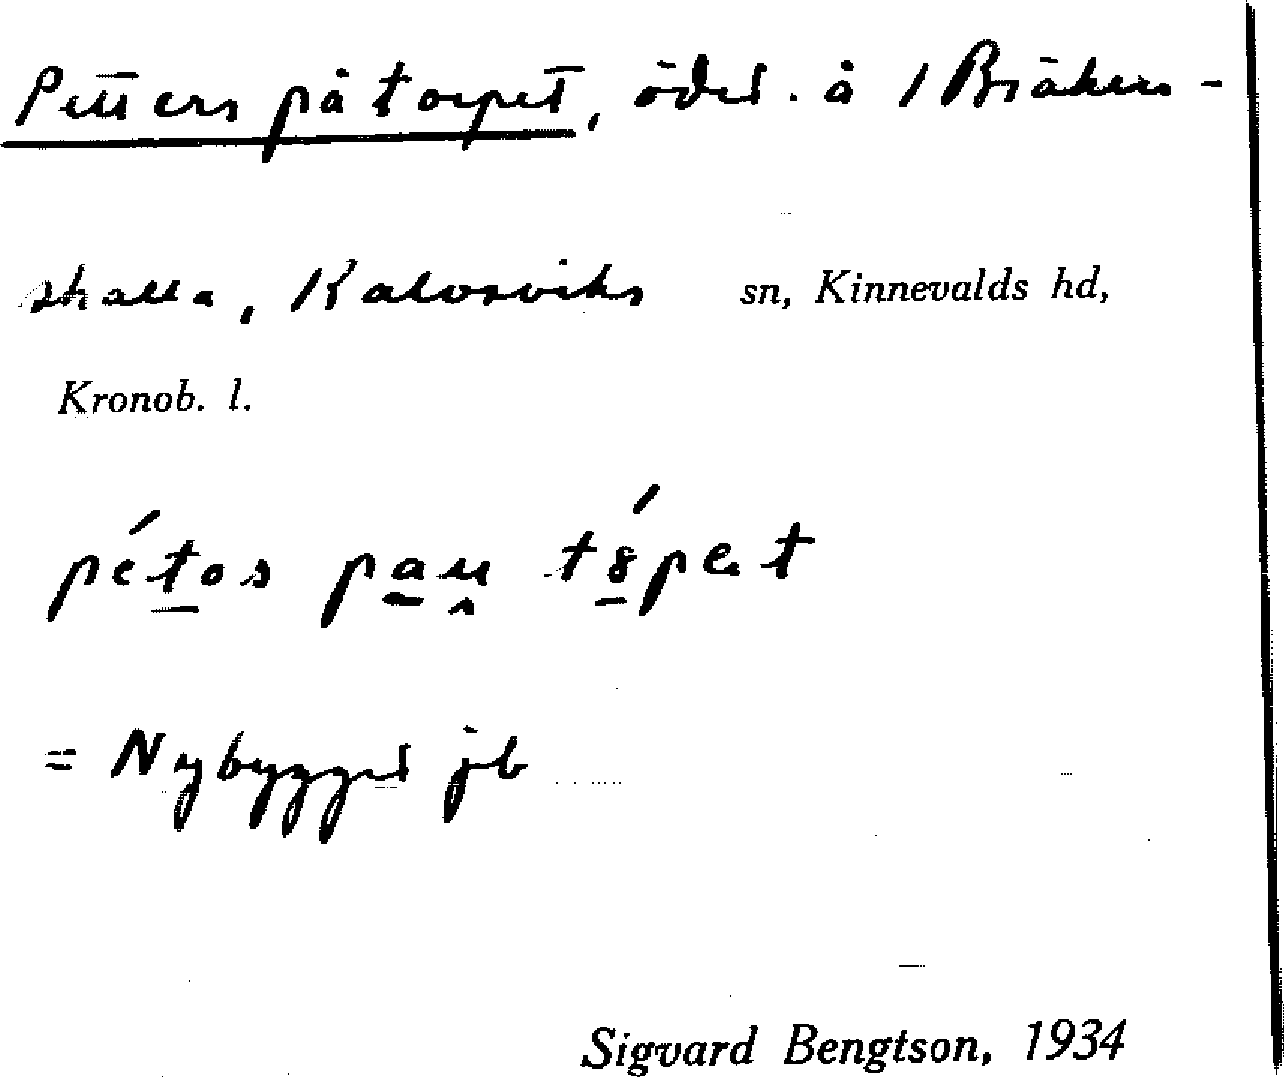 Petters på torpet, ödel. å 1 Bräken-
skalla, Kalvsviks sn, Kinnevalds hd,
Kronob. l.
pétos pau̯ tápet
= Nybygget jb
Sigvard Bengtson, 1934